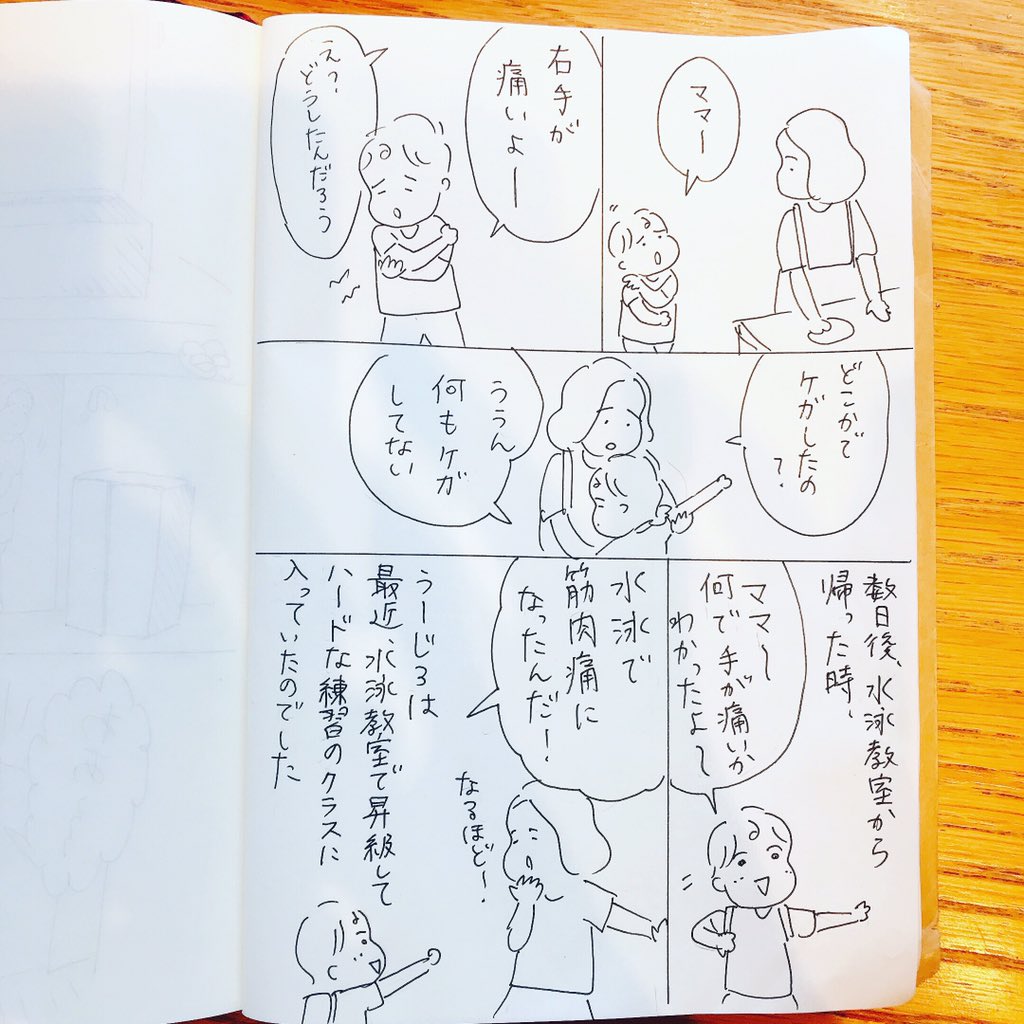 ママー
右手が
痛いよー
えっ?
どうしたんだろう
どこかで
ケガしたの
?
ううん
何もケガ
してない
数日後、水泳教室から
帰った時、
ママー
何で手が痛いか
わかったよ〜
水泳で
筋肉痛に
なったんだ!
なるほど!
うーじろは
最近、水泳教室で昇級して
ハードな練習のクラスに
入っていたのでした